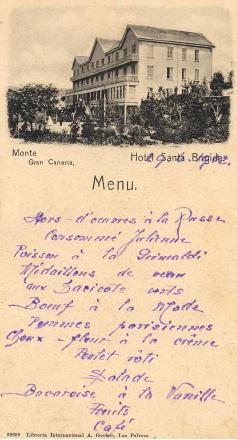 Monte
Gran Canaria,
Hotel Santa Brigida
Menu.
Hors-d'œuvres à la Russe
Consommé Julienne
Poisson à la Grimaldi
Médaillons de veau
aux verts
Bœuf à la Mode
Pommes parisiennes
Choux-fleur à la crême
Poulet roti
Salade
Bavaroise à la Vanille
Fruits
Café
Libreria Internacional A. Goebel, Las Palmas.